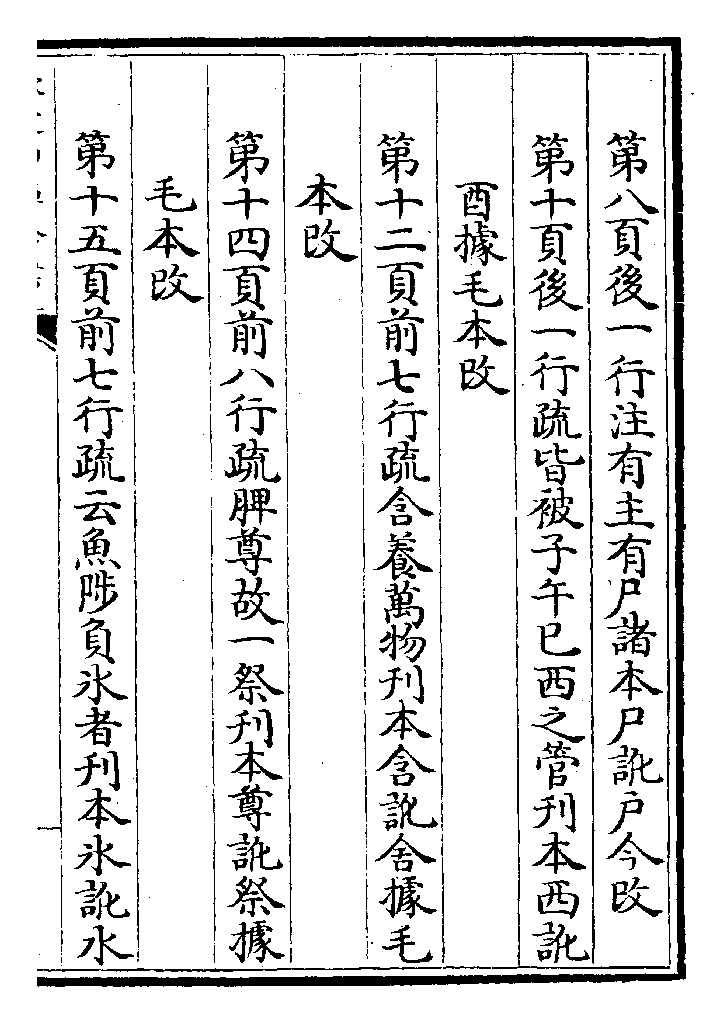 第八頁後一行注有主有尸諸本尸訛户今改
第十頁後一行疏皆被子午巳西之管刊本西訛
酉據毛本改
第十二頁前七行疏含養萬物刊本含訛舍據毛
本改
第十四頁前八行疏脾尊故一祭刊本尊訛祭據
毛本改
第十五頁前七行疏云魚陟負氷者刊本氷訛水